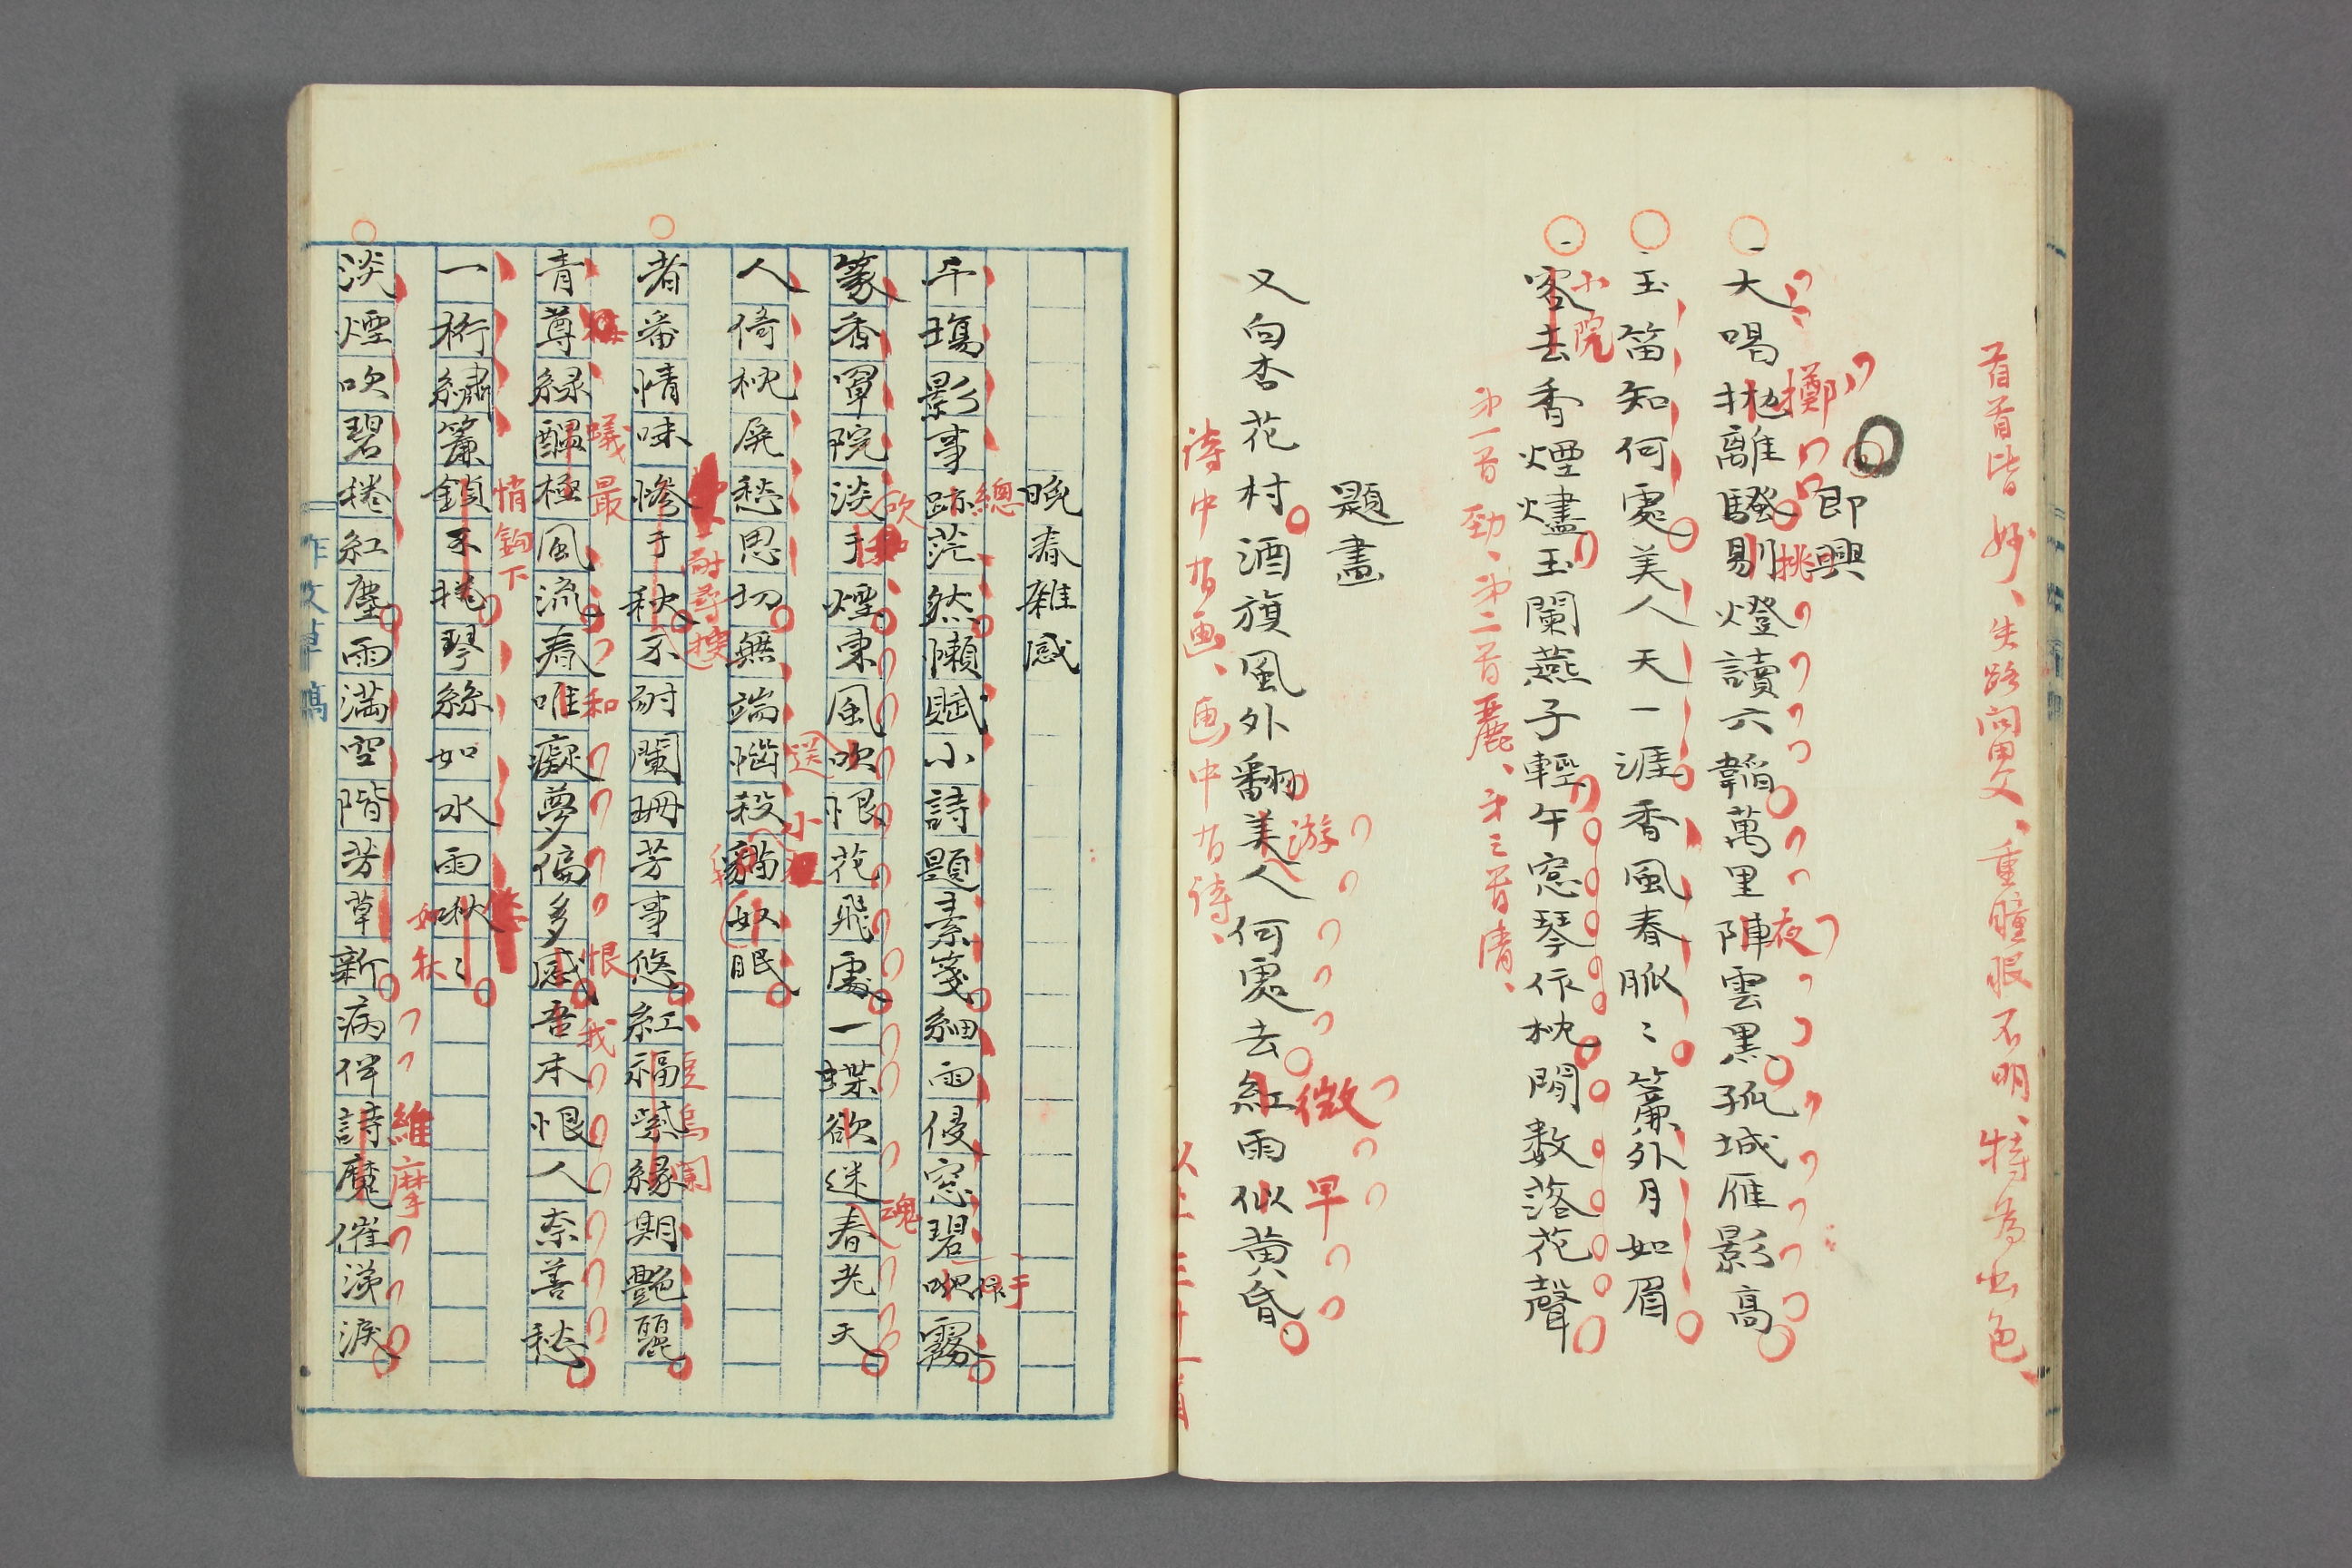 首首皆妙、失路問男、重瞳眼不明、特為出色、
即興
大喝抛離騒剔燈讀六韜萬里陣雲黒孤城雁影高
擲
挑
夜
玉笛知何處美人天一涯香風春脈〻簾外月如眉
客去香煙燼玉闌燕子輕午窓琴作枕閒数落花聲
小院
第一首勁、第二首麗、第三首清、
題畫
又白杏花村酒旗風外翻美人何處去紅雨似黄昏
游
微
早
詩中有画、画中有詩、
以上三十一首
晩春雜感
千塲影事跡茫然懶賦小詩題素箋細雨侵窓碧呪霧
總
于
篆香罩院淡于煙東風吹恨花飛處一蝶欲迷春老天
欲
魂
人倚枕屏愁思切無端惱殺貓奴眠
送
小
者番情味惨于秋不耐闌珊芳事悠紅福紫緣期艶麗
耐尋搜
烏闌
青尊緑醞極風流春唯癡夢偏多感吾本恨人奈善愁
蟻最
和
恨
我
一桁繡簾鎖不捲琴絲如水雨啾〻
悄鈎下
如秋
淡煙吹碧捲紅塵雨満空階芳草新病伴詩魔催涕涙
維摩
作文草稿